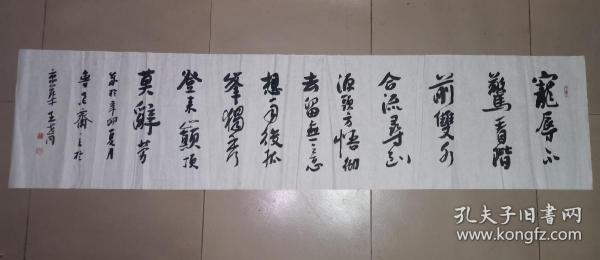 寵辱不
驚看階
前雙水
合流尋到
源頭方悟徹
去留無意忘
想雨後孤
峯獨秀
登来巔頂
莫辭勞
辛卯夏月
齋
孔夫子旧书网
www.kongfz.com